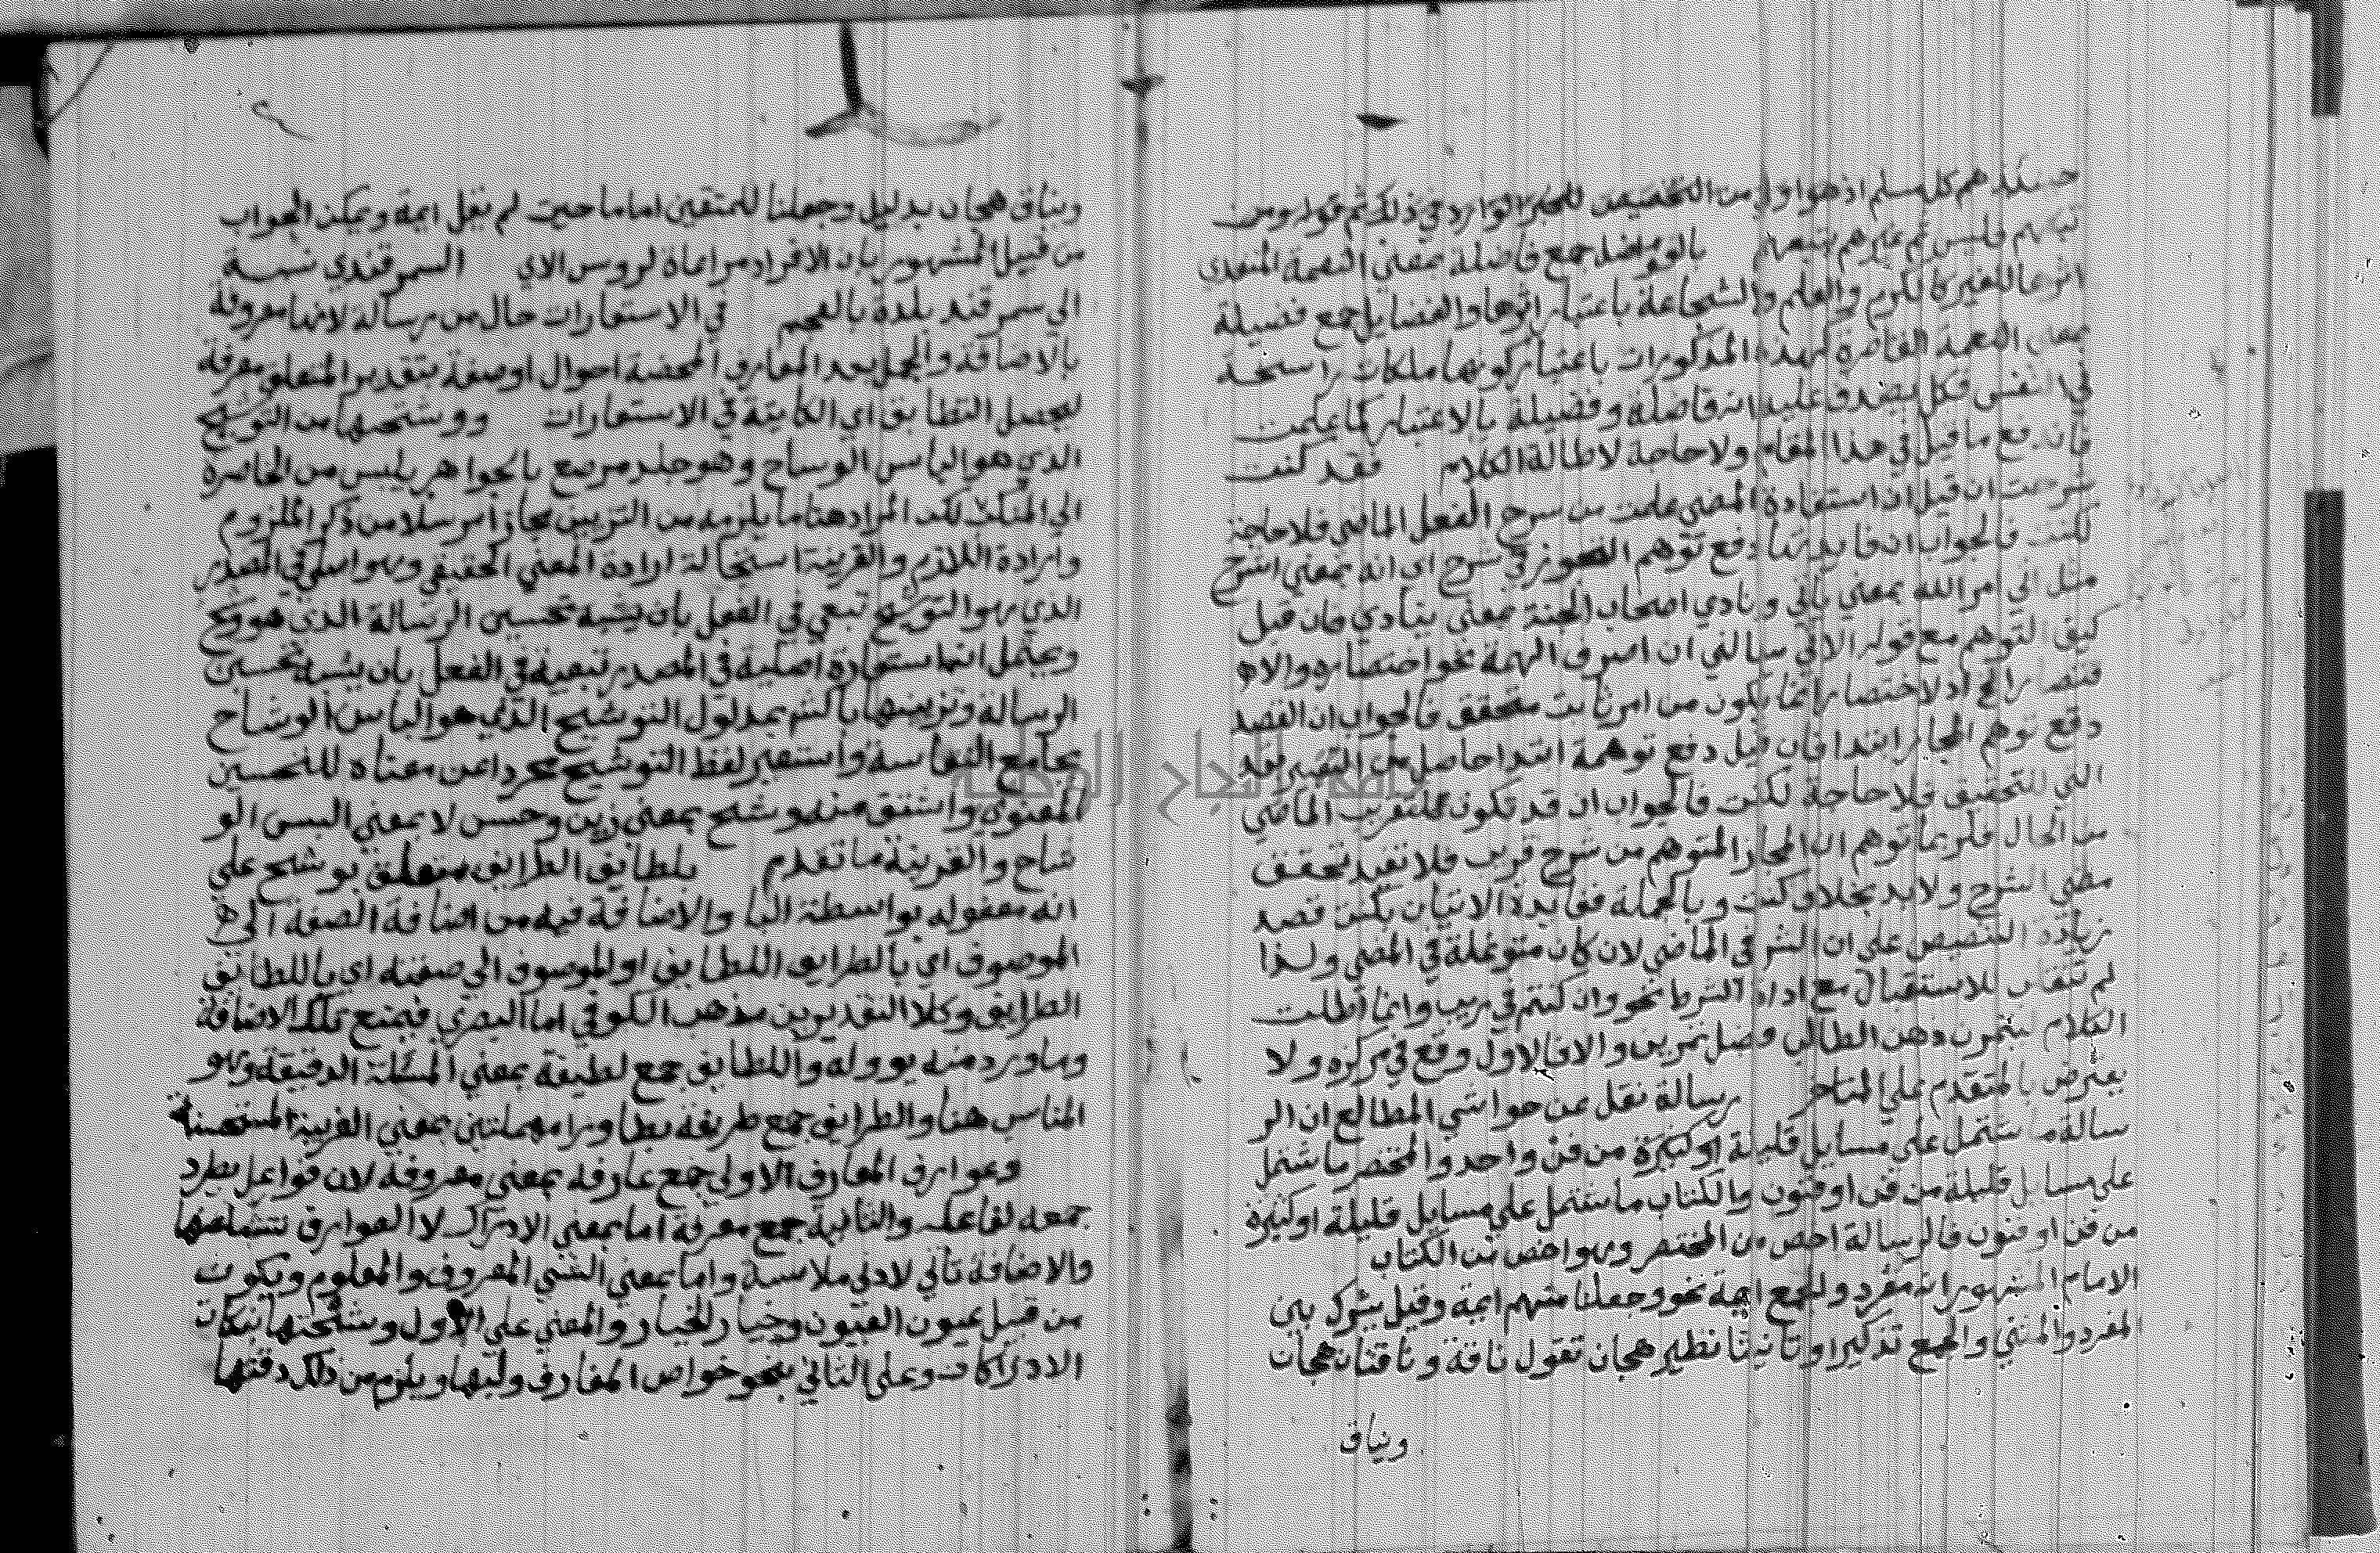 حينئذ هم كل مسلم اذ هو اولى من التخصيص للخبر الوارد في ذلك ثم
نبيهم فليس ثم غيرهم بالفواضل جمع فاضلة بمعني النعمة المتعدي
اثرها للغير كالكرم والعلم والشجاعة باعتبار اثرها والفضايل جمع فضيلة
بمعنى النعمة القاصرة كهذه المذكورات باعتبار كونها ملكات راسخة
في النفس فكل يصدق عليه انه فاضلة وفضيلة بالاعتبار كما علمت
فاندفع ما قيل في هذا المقام ولا حاجة لاطالة الكلام فقد كنت
شرحت ان قيل ان استفادة المضي علمت من شرح الفعل الماضي فلا حاجة
لكنت فالجواب ان فايدتها دفع توهم التجوز في شرح اى انه بمعني اشرح
مثل اتي امر الله بمعني ياتي ونادي اصحاب الجنة بمعني ينادي فان قيل
كيف التوهم مع قوله الاتي سالني ان اصرف الهمة نحو اختصاره والا
فتصار الخ اذ الاختصار انما يكون من امر ثابت متحقق فالجواب ان القصد
دفع توهم المجاز ابتدا فان قيل دفع توهمه ابتدا حاصل من التعبير بقد
التي للتحقيق فلا حاجة لكنت فالجواب ان قد تكون للتقريب الماضي
من الحال فلربما توهم ان المجاز المتوهم من شرح قريب فلا تفيد تحقق
مضي الشرح ولا بد بخلاف كنت وبالجملة ففايدة الاتيان بكنت قصد
زيادة التنصيص على ان الشرح في الماضي لان كان متوغلة في المضي ولذا
لم تنقلب للاستقبال مع اداة الشرط نحو وان كنتم في ريب وانما اطلت
الكلام ليتمرن ذهن الطالب وصل تمرين والا فالاول وقع في مركزه ولا
يعترض بالمتقدم علي المتاخر رسالة نقل عن حواشي المطالع ان الر
سالة ما اشتمل على مسايل قليلة او كثيرة من فن واحد والمختصر ما شتمل
على مسايل قليلة من فن او فنون والكتاب ما شتمل علي مسايل قليلة او كثيرة
من فن او فنون فالرسالة اخص من المختصر وهو اخص من الكتاب
الامام المشهور انه مفرد والجمع ايمة نحو وجعلنا منهم ايمة وقيل يشترك بين
المفرد والمثني والجمع تذكيرا وتانيثا نظير هجان تقول ناقة وناقتان هجان
ونياق
ونياق هجان بدليل وجعلنا للمتقين اماما حيث لم نقل ايمة ويمكن الجواب
من قبيل المشهور بان الافراد مراعاة لروس الاي السمرقندي نسبة
الي سمرقند بلدة بالعجم في الاستعارات حال من رسالة لانها معرفة
بالاضافة والجمل بعد المعارف المحضة احوال او صفة بتقدير المتعلق معرفة
ليحصل التطابق اي الكاينة في الاستعارات ووشحتها من التوشيح
الذي هو الباس الوشاح وهو جلد مرصع بالجواهر يلبس من الخاصرة
الي المنكب لكن المراد هنا ما يلزمه من التزيين مجاز مرسلا من ذكر الملزوم
وارادة اللازم والقرينة استحالة ارادة المعني الحقيقي وهو اصلي في المصدر
الذي هو التوشيح تبعي في الفعل بان يشبه تحسين الرسالة الذي هو وشح
ويحتمل انها استعارة اصلية في المصدر تبعية في الفعل بان يشبه تحسين
الرسالة وتزيينها بالشرح بمدلول التوشيح الذي هو الباس الوشاح
بجامع النفاسة واستعير لفظ التوشيح مجردا عن معناه للتحسين
المعنوي واشتق منه وشح بمعني زين وحسن لا بمعني البس الو
شاح والقرينة ما تقدم بلطايف الطرايف متعلق بوشح علي
انه مفعوله بواسطة البا والاضافة فيه من اضافة الصفة الي
الموصوف اي بالطرايف اللطايف او الموصوف الي صفته اي باللطايف
الطرايف وكلا التقديرين مذهب الكوفي اما البصري فيمنع تلك الاضافة
وما ورد منه يووله واللطايف جمع لطيفة بمعني المسئلة الدقيقة وهو
المناسب هنا والطرايف جمع طريفة بطا ورا مهملتين بمعني الغريبة المستحسنة
وعوارف المعارف الاولي جمع عارفة بمعني معروفة لان فواعل يطرد
جمعه لفاعلة والثانية جمع معرفة اما بمعني الادراك لا العوارف تنشا عنها
والاضافة تاتي لادني ملابسة واما بمعني الشي المعروف والمعلوم ويكون
من قبيل عيون العيون وخيار الخيار والمعني علي الاول وشحتها بنكات
الادراكات وعلى الثاني بنحو خواص المعارف ولبها ويلزم من ذلك دقتها